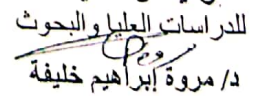 للدراسات العليا والبحوث
د/ مروة إبراهيم خليفة